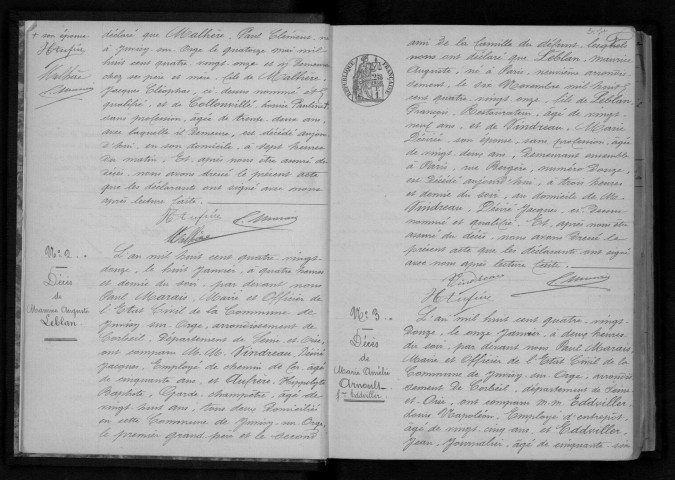 + son épouse
Hufrère
Malhère
Marais
déclaré que Malhère, Paul Clément, né
à Juvisy sur Orge le quatorze mai mil
huit cent quatre vingt onze et y demeurant
chez ses père et mère, fils de Malhère,
Jacques Cléophas, ci devant nommé et
qualifié, et de Collonville, Louise Pauline
sans profession, âgée de trente deux ans,
avec laquelle il demeure, est décédé aujour
d'hui, en son domicile, à sept heures
du matin. Et, après nous être assuré du
décès, nous avons dressé le présent acte
que les déclarants ont signé avec nous
après lecture faite.
Hufrère
Malhère
Marais
No 2.
Décès
de
Maurice Auguste
Leblan
L'an mil huit cent quatre vingt
douze, le huit Janvier, à quatre heures
et demie du soir, par devant nous
Paul Marais, Maire et Officier de
l'Etat Civil de la Commune de
Juvisy sur Orge, arrondissement de
Corbeil, Département de Seine et Oise,
ont comparu M.M. Vindreau, Désiré
Jacques, Employé de chemin de fer, âgé
de cinquante ans, et Aufrère, Hippolyte
Baptiste, Garde champêtre, âgé de
vingt huit ans, tous deux domiciliés
en cette Commune de Juvisy sur Orge,
le premier grand père et le second
REPUBLIQUE FRANÇAISE
ami de la famille du défunt, lesquels
nous ont déclaré que Leblan, Maurice
Auguste, né à Paris, neuvième arrondis-
sement, le dix Novembre mil huit
cent quatre vingt onze, fils de Leblan,
François, Restaurateur, âgé de vingt
neuf ans, et de Vindreau, Marie
Désirée, son épouse, sans profession, âgée
de vingt deux ans, demeurant ensemble
à Paris, rue Bergère, numéro Douze,
est décédé aujourd'hui, à trois heures
et demie du soir, au domicile de M.
Vindreau, Désiré Jacques, ci devant
nommé et qualifié. Et, après nous être
assuré du décès, nous avons dressé le
présent acte que les déclarants ont signé
avec nous après lecture faite.
Vindreau
Marais
Hufrère
No 3.
Décès
de
Marie Amélie
Arnoult
fme Eddviller
L'an mil huit cent quatre vingt
douze, le onze Janvier, à deux heures
du soir, par devant nous Paul Marais,
Maire et Officier de l'Etat Civil de la
Commune de Juvisy sur Orge, arrondis-
sement de Corbeil, département de Seine
et Oise, ont comparu M.M. Eddviller,
Louis Napoléon, Employé d'entrepôt,
âgé de vingt cinq ans, et Eddviller,
Jean, Journalier, âgé de cinquante six